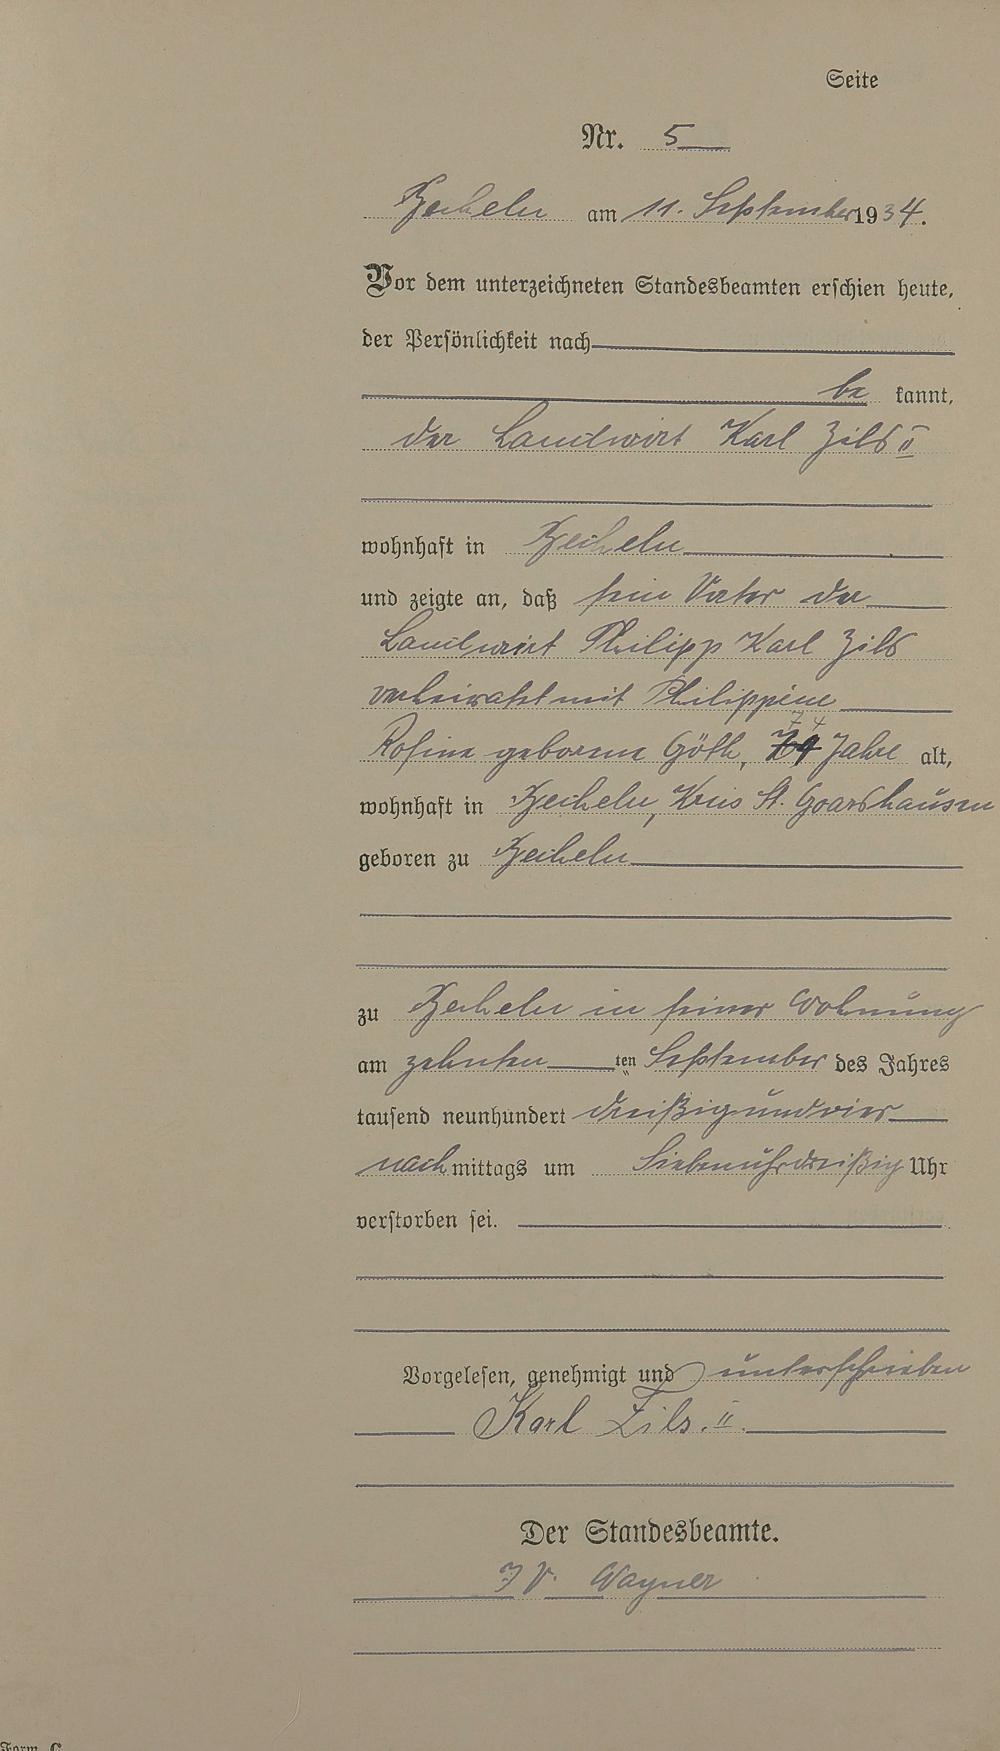 Seite
Nr. 5
am 11. September 1934.
Vor dem unterzeichneten Standesbeamten erschien heute,
der Persönlichkeit nach
be kannt,
der Landwirt Karl Zils II
wohnhaft in
und zeigte an, daß sein Vater der
Landwirt Philipp Karl Zils
verheiratet mit Philippine
74
Rosine geborene Göth, Jahre alt,
wohnhaft in Kreis St. Goarshausen
geboren zu
zu in seiner Wohnung
am zehnten ten September des Jahres
tausend neunhundert dreißigundvier
nachmittags um Siebenuhrdreißig Uhr
verstorben sei.
Vorgelesen, genehmigt und unterschrieben
Karl Zils. II.
Der Standesbeamte.
J V. Wagner
Form. C